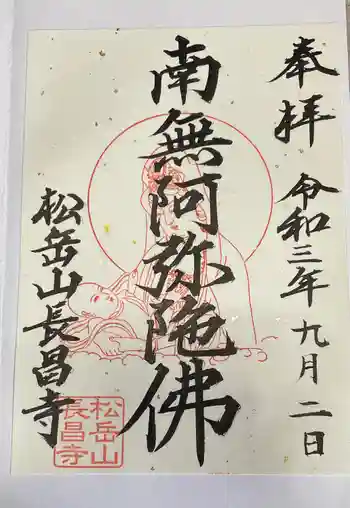 奉拝
令和三年九月二日
南無阿弥陀佛
松岳山長昌寺
松岳山
長昌寺